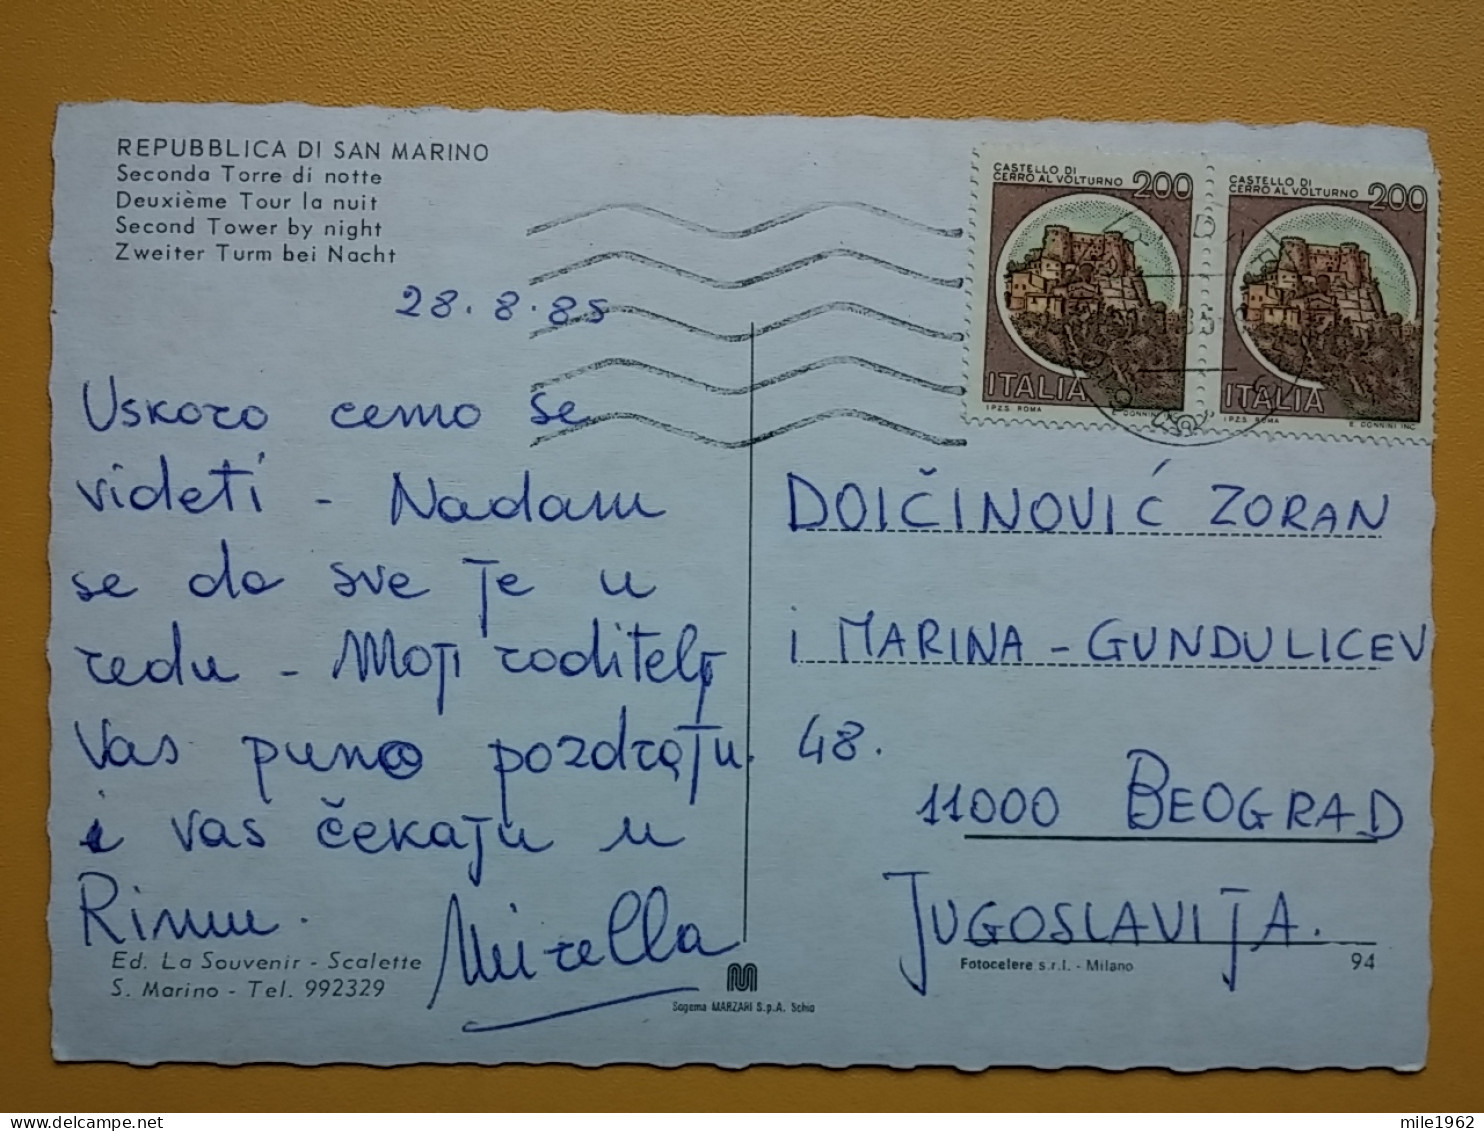 REPUBBLICA DI SAN MARINO
Seconda Torre di notte
Deuxième Tour la nuit
Second Tower by night
Zweiter Turm bei Nacht
28.8.85
Uskoro cemo se
videti - Nadam
se da sve je u
redu - Moji roditelji
Vas puno pozdravju
i vas čekaju u
Rimu.
Mirella
Ed. La Souvenir - Scalette
S. Marino - Tel. 992329
Sogema MARZARI S.p.A. Schio
CASTELLO DI
CERRO AL VOLTURNO 200
ITALIA
I.P.Z.S. ROMA E. DONNINI
CASTELLO DI
CERRO AL VOLTURNO 200
ITALIA
I.P.Z.S. ROMA E. DONNINI INC.
DOIČINOVIĆ ZORAN
i MARINA - GUNDULICEV
48.
11000 BEOGRAD
JUGOSLAVIJA.
Fotocelere s.r.l. - Milano 94
mile1962